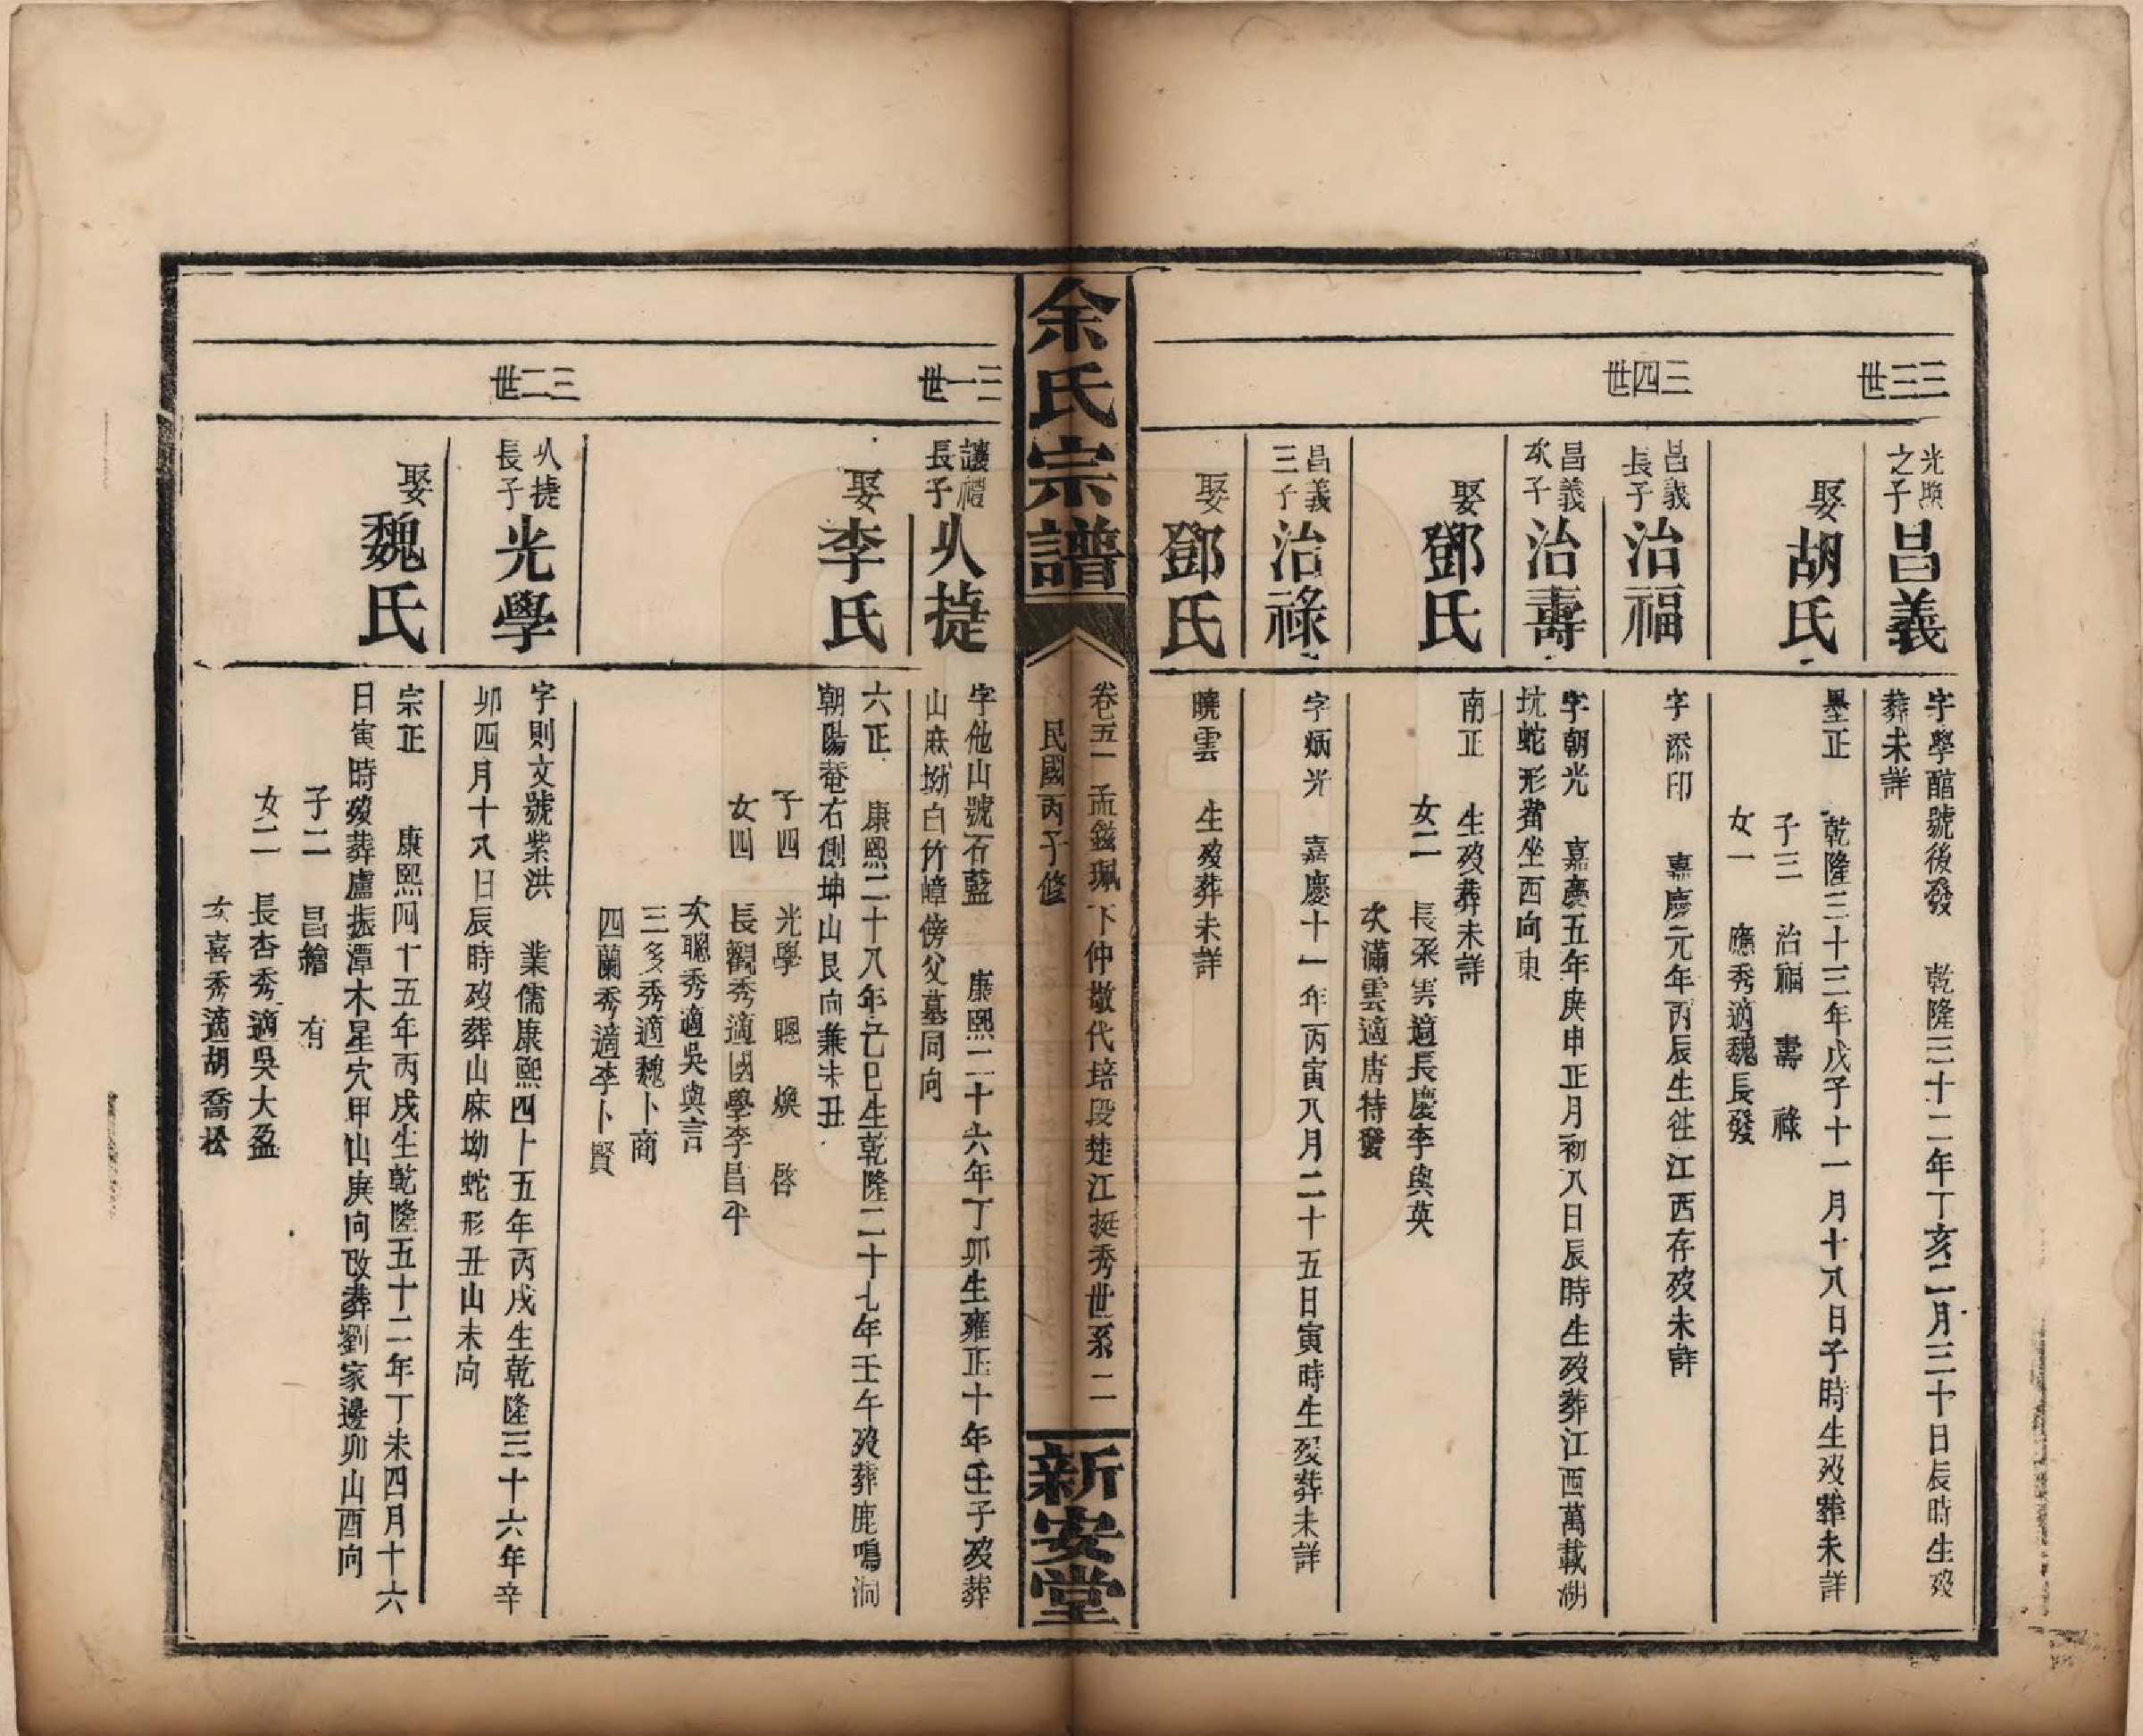 三三世
光照之子
昌義
字學韹號後發　乾隆三十二年丁亥二月三十日辰時生歿
葬未詳
娶胡氏
墨正　乾隆三十三年戊子十一月十八日子時生歿葬未詳
子三　治福　壽　祿
女一　應秀適魏長發
三四世
昌義長子
治福
字添印　嘉慶元年丙辰生徃江西存歿未詳
昌義次子
治壽
字朝光　嘉慶五年庚申正月初八日辰時生歿葬江西萬載湖
坑蛇形嘴坐西向東
娶鄧氏
南正　生歿葬未詳
女二　長采雲適長慶李與英
次滿雲適唐特發
昌義三子
治祿
字炳光　嘉慶十一年丙寅八月二十五日寅時生歿葬未詳
娶鄧氏
曉雲　生歿葬未詳
余氏宗譜
卷五一　孟鎡珮下仲敬代培段楚江挺秀世系　二
民國丙子修
新安堂
三一世
讓禮長子
从捷
字他山號石藍　康熙二十六年丁卯生雍正十年壬子歿葬
山麻坳白竹嶂傍父墓同向
娶李氏
六正　康熙二十八年己巳生乾隆二十七年壬午歿葬鹿鳴洞
朝陽菴右側坤山艮向兼未丑
子四　光學　聰　煥　啓
女四　長觀秀適國學李昌平
次聰秀適吳與言
三多秀適魏卜商
四蘭秀適李卜賢
三二世
从捷長子
光學
字則文號紫洪　業儒康熙四十五年丙戌生乾隆三十六年辛
卯四月十八日辰時歿葬山麻坳蛇形丑山未向
娶魏氏
宗正　康熙四十五年丙戌生乾隆五十二年丁未四月十六
日寅時歿葬盧振潭木星穴甲山庚向改葬劉家邊卯山酉向
子二　昌繪　有
女二　長杏秀適吳大盈
次喜秀適胡喬松